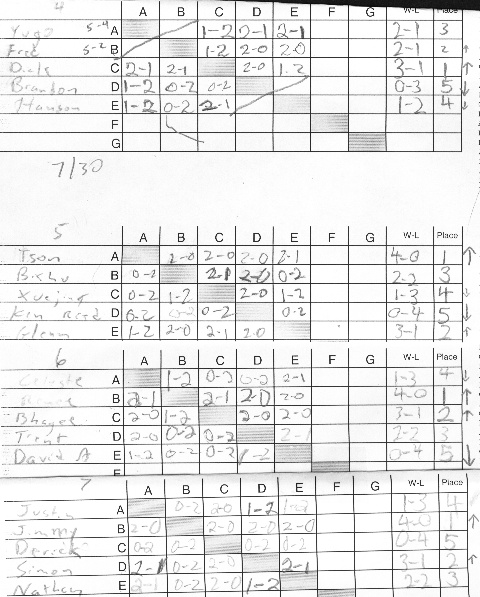 4
A B C D E F G W-L Place
Yugo 5-4 A 1-2 2-1 2-1 2-1 3
Fred 5-2 B 1-2 2-0 2-0 2-1 2
Dick C 2-1 2-1 2-0 1-2 3-1 1 ↑
Brandon D 1-2 0-2 0-2 0-3 5 ↓
Hanson E 1-2 0-2 2-1 1-2 4 ↓
F
G
7/30
5
A B C D E F G W-L Place
Tson A 2-0 2-0 2-0 2-1 4-0 1 ↑
Bishu B 0-2 2-1 2-0 0-2 2-2 3
C 0-2 1-2 2-0 1-2 1-3 4 ↓
Ken Reed D 0-2 0-2 0-2 0-2 0-4 5 ↓
Glenn E 1-2 2-0 2-1 2-0 3-1 2 ↑
6
A B C D E F G W-L Place
A 1-2 0-2 0-2 2-1 1-3 4 ↓
B 2-1 2-1 2-0 2-0 4-0 1 ↑
C 2-0 1-2 2-0 2-0 3-1 2 ↑
Trent D 2-0 0-2 0-2 2-1 2-2 3
David A E 1-2 0-2 0-2 1-2 0-4 5 ↓
F
7
A B C D E F G W-L Place
Justin A 0-2 2-0 1-2 1-2 1-3 4
Jimmy B 2-0 2-0 2-0 2-0 4-0 1 ↑
Derrick C 0-2 0-2 0-2 0-2 0-4 5
Simon D 2-1 0-2 2-0 2-1 3-1 2 ↑
Nathan E 2-1 0-2 2-0 1-2 2-2 3